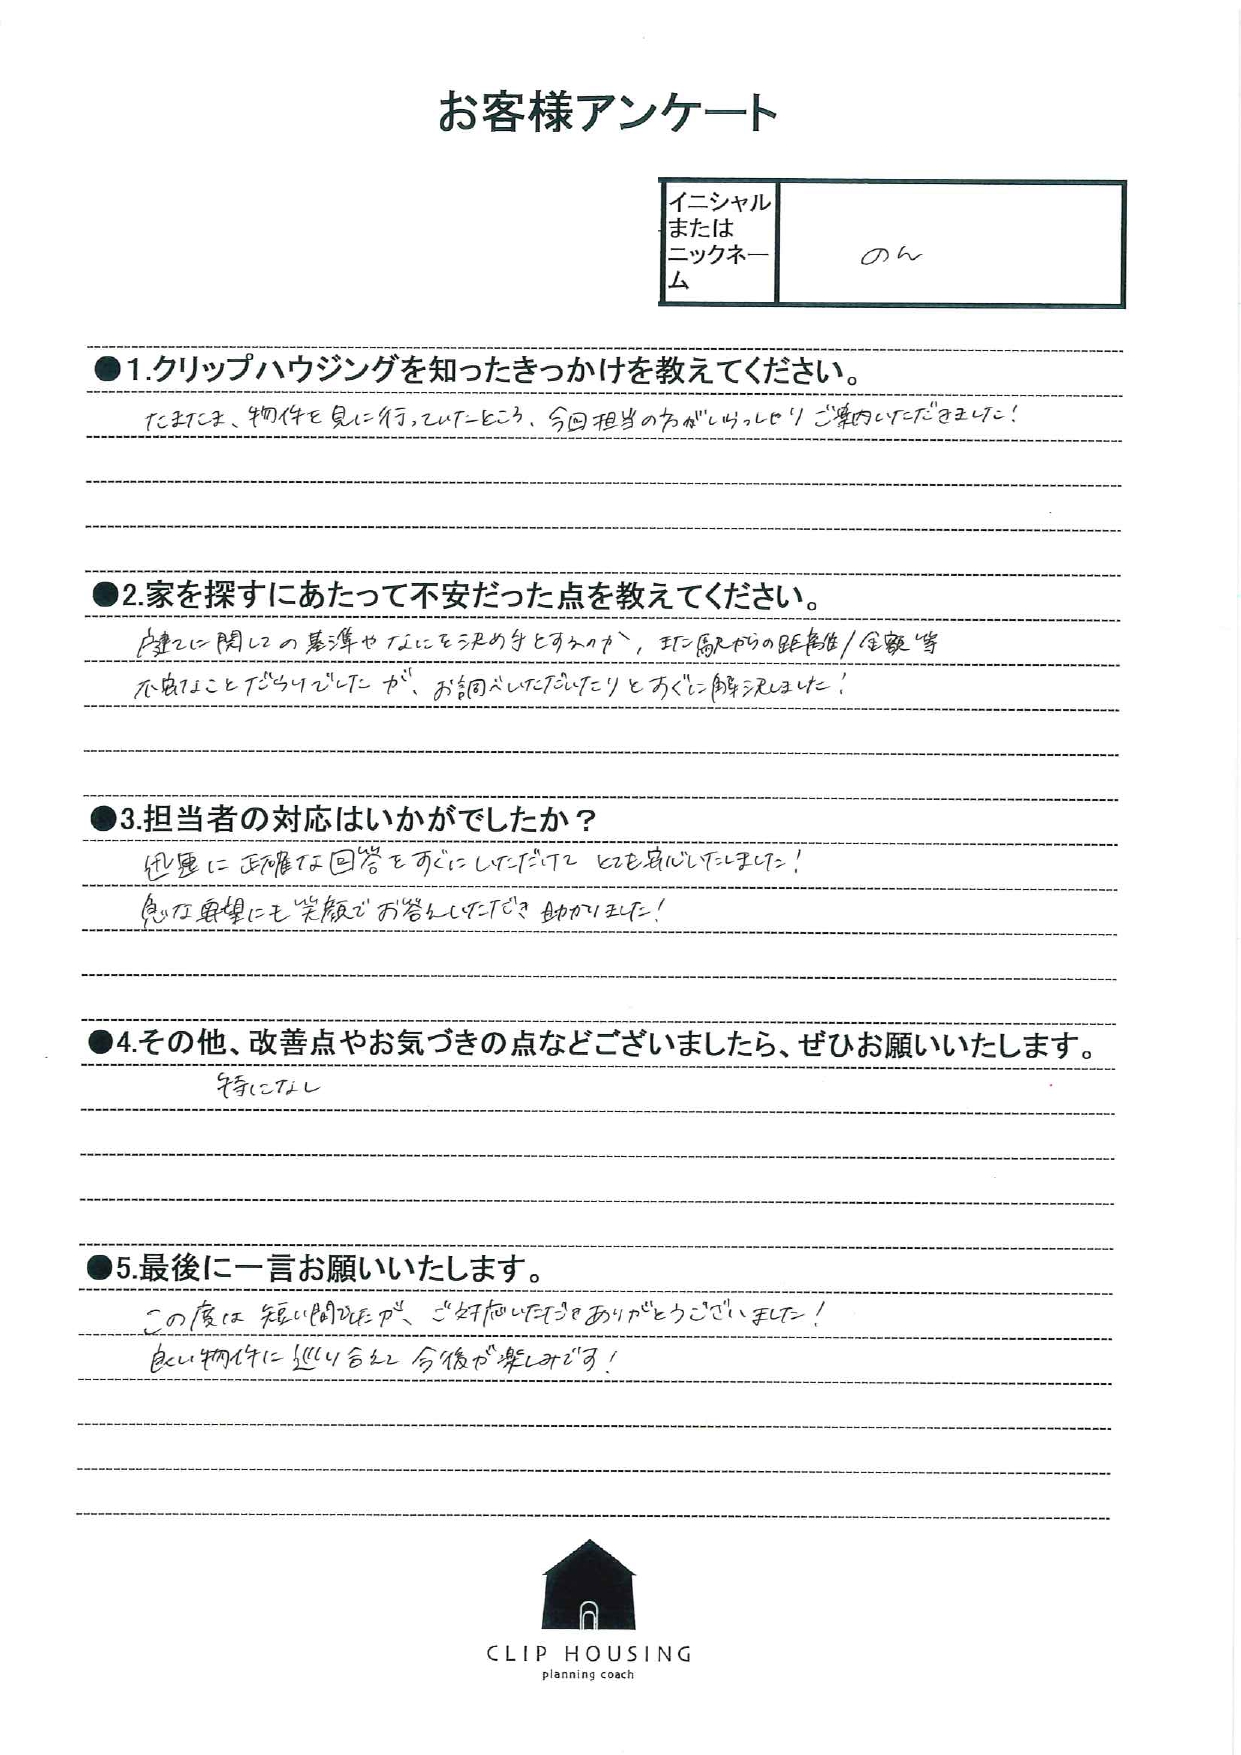 お客様アンケート
イニシャル
または
ニックネー
ム
のん
●1.クリップハウジングを知ったきっかけを教えてください。
たまたま、物件を見に行っていたところ、今回担当の方がいらっしゃりご案内いただきました！
●2.家を探すにあたって不安だった点を教えてください。
戸建てに関しての基準やなにを決め手とするのか、また駅からの距離/金額等
不安なことだらけでしたが、お調べいただいたりとすぐに解決しました！
●3.担当者の対応はいかがでしたか？
迅速に正確な回答をすぐにしていただけてとても安心いたしました！
急な要望にも笑顔でお答えいただき助かりました！
●4.その他、改善点やお気づきの点などございましたら、ぜひお願いいたします。
特になし
●5.最後に一言お願いいたします。
この度は短い間でしたが、ご対応いただきありがとうございました！
良い物件に巡り合えて今後が楽しみです！
CLIP HOUSING
planning coach